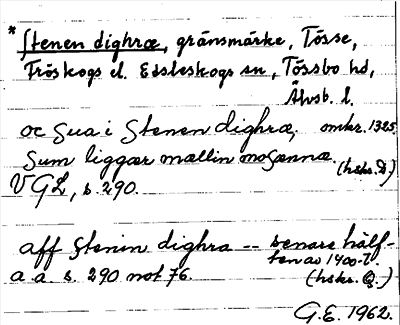 * Stenen dighræ, gränsmärke, Tösse,
Fröskogs el. Edsleskogs sn, Tössbo hd,
Älvsb. l.
oc sua i stenen dighræ, omkr. 1325.
sum liggær mællin mosænnæ. (hskr. D)
VGL, s. 290.
aff stenin dighra -- senare hälf-
ten av 1400-t.
a.a. s. 290 not 76. (hskr. E.)
G.E. 1962.